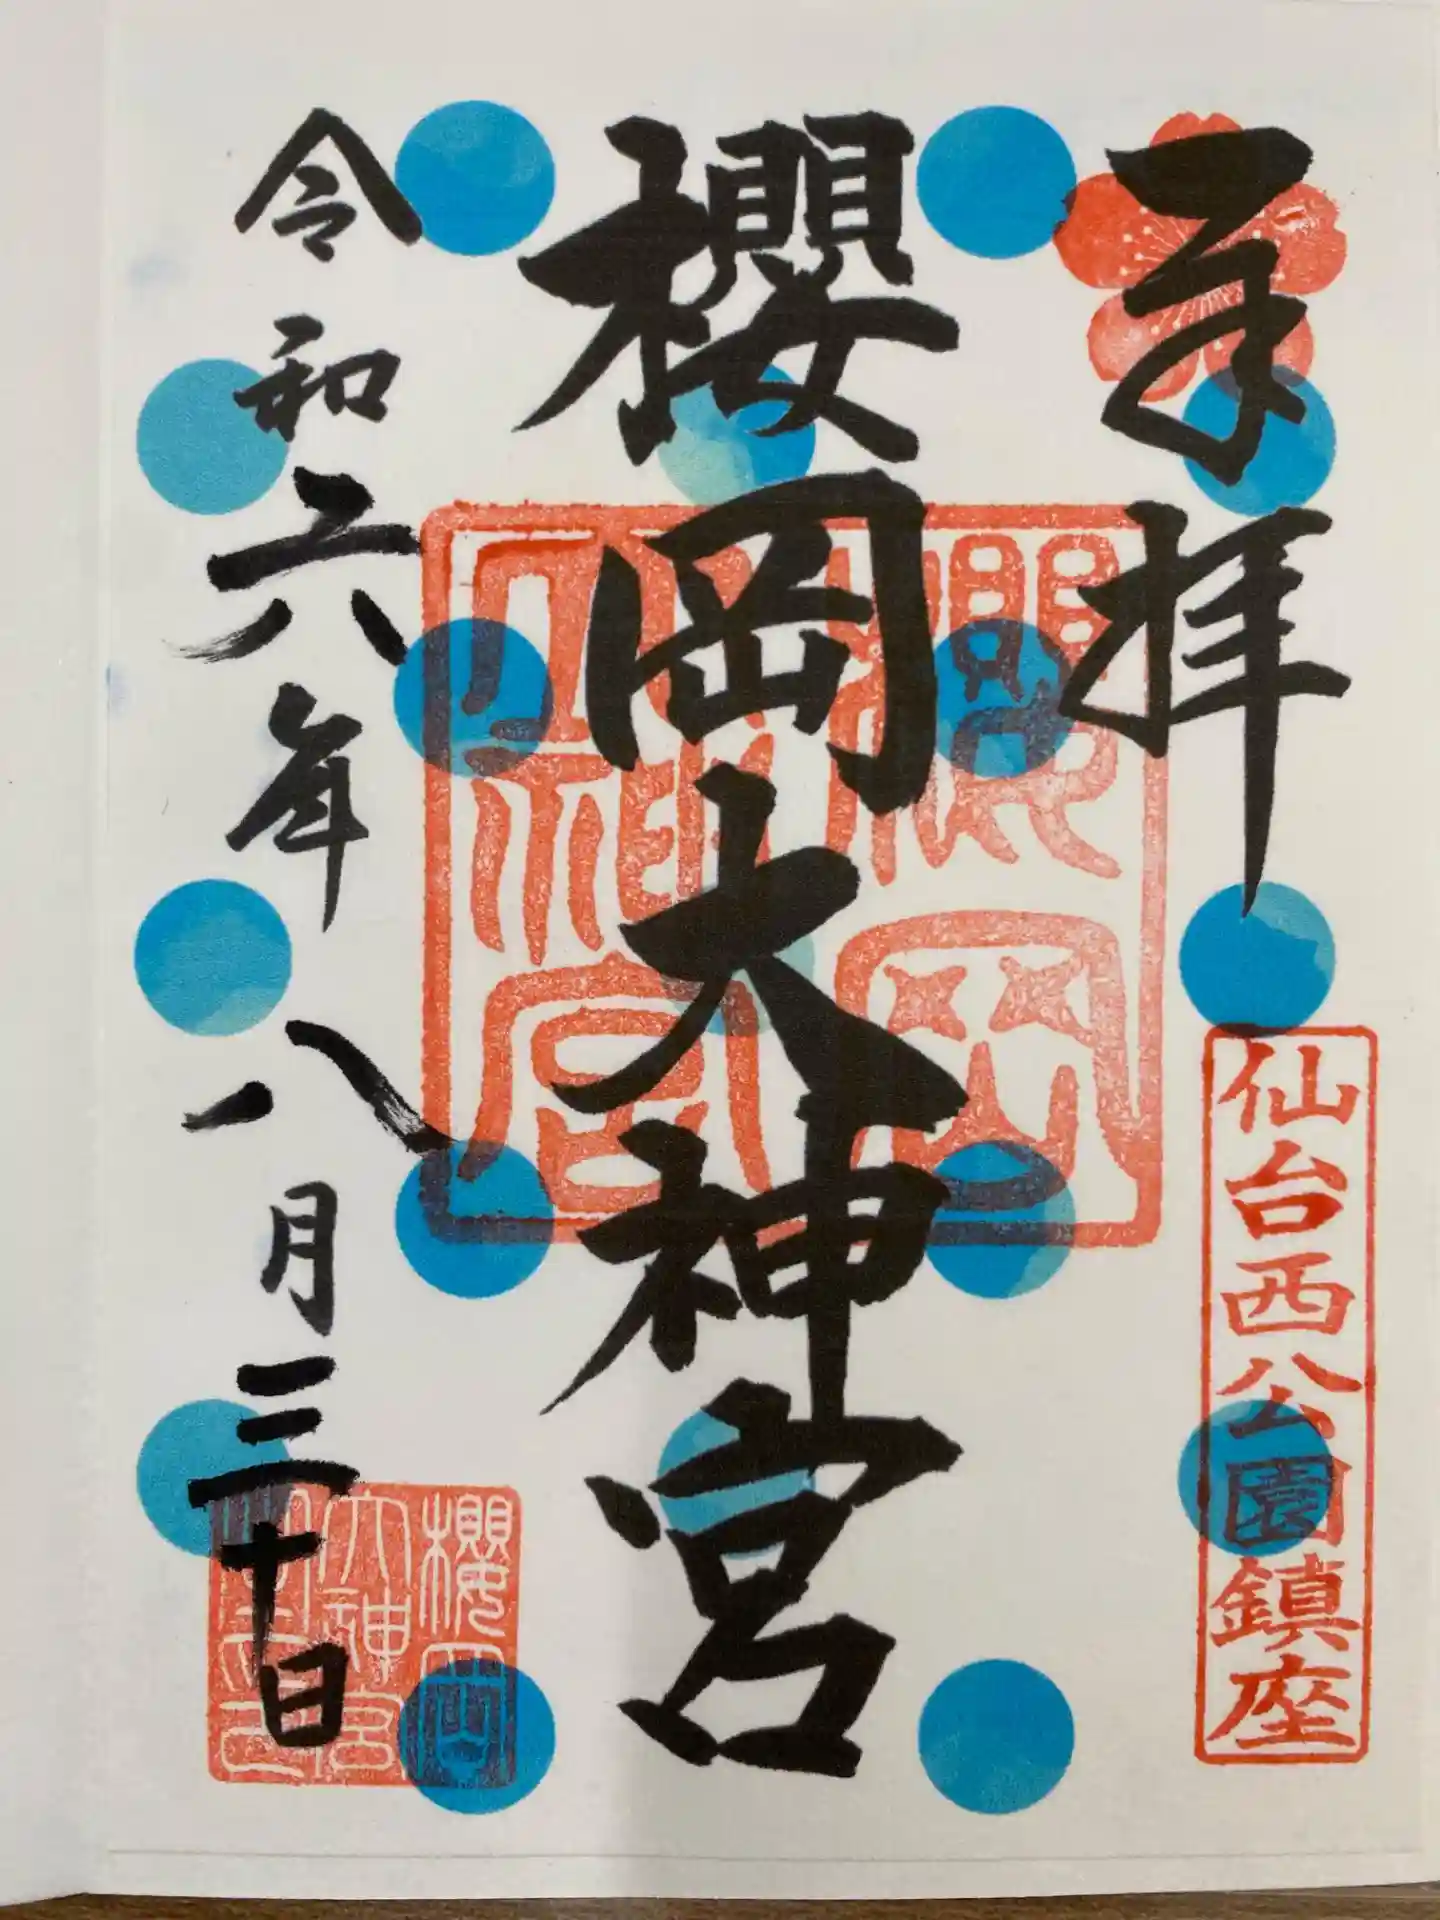 奉拝
仙台西公園鎮座
櫻岡大神宮
櫻岡
大神宮
令和六年八月三十日
櫻岡
大神宮